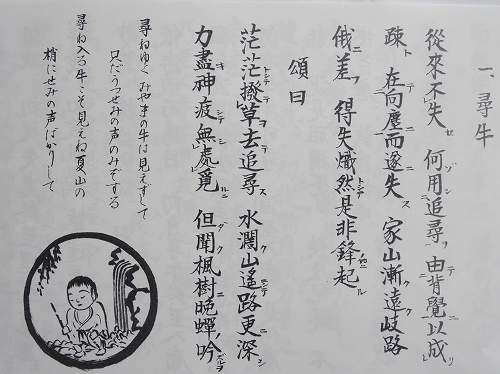 一、尋牛
從來不失 何用追尋 由背覺以成
疎 在向塵而遂失 家山漸遠岐路
俄差 得失熾然是非鋒起
頌曰
茫茫撥草去追尋 水濶山遙路更深
力盡神疲無處覓 但聞楓樹晩蟬吟
尋ねゆくみやまの牛は見えずして
只だうつせみの声のみぞする
尋ね入る牛こそ見えね夏山の
梢にせみの声ばかりして